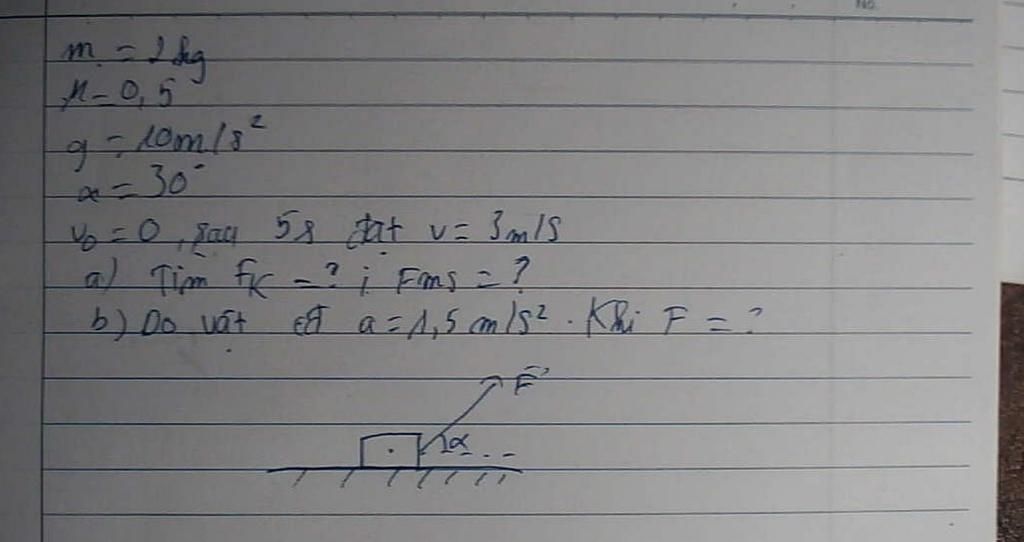 No.
m = 2kg
μ = 0,5
g = 10m/s²
α = 30°
v₀ = 0, sau 5s đạt v = 3m/s
a) Tìm Fk = ? ; Fms = ?
b) Do vật có a = 1,5 m/s². Khi F = ?
F
α